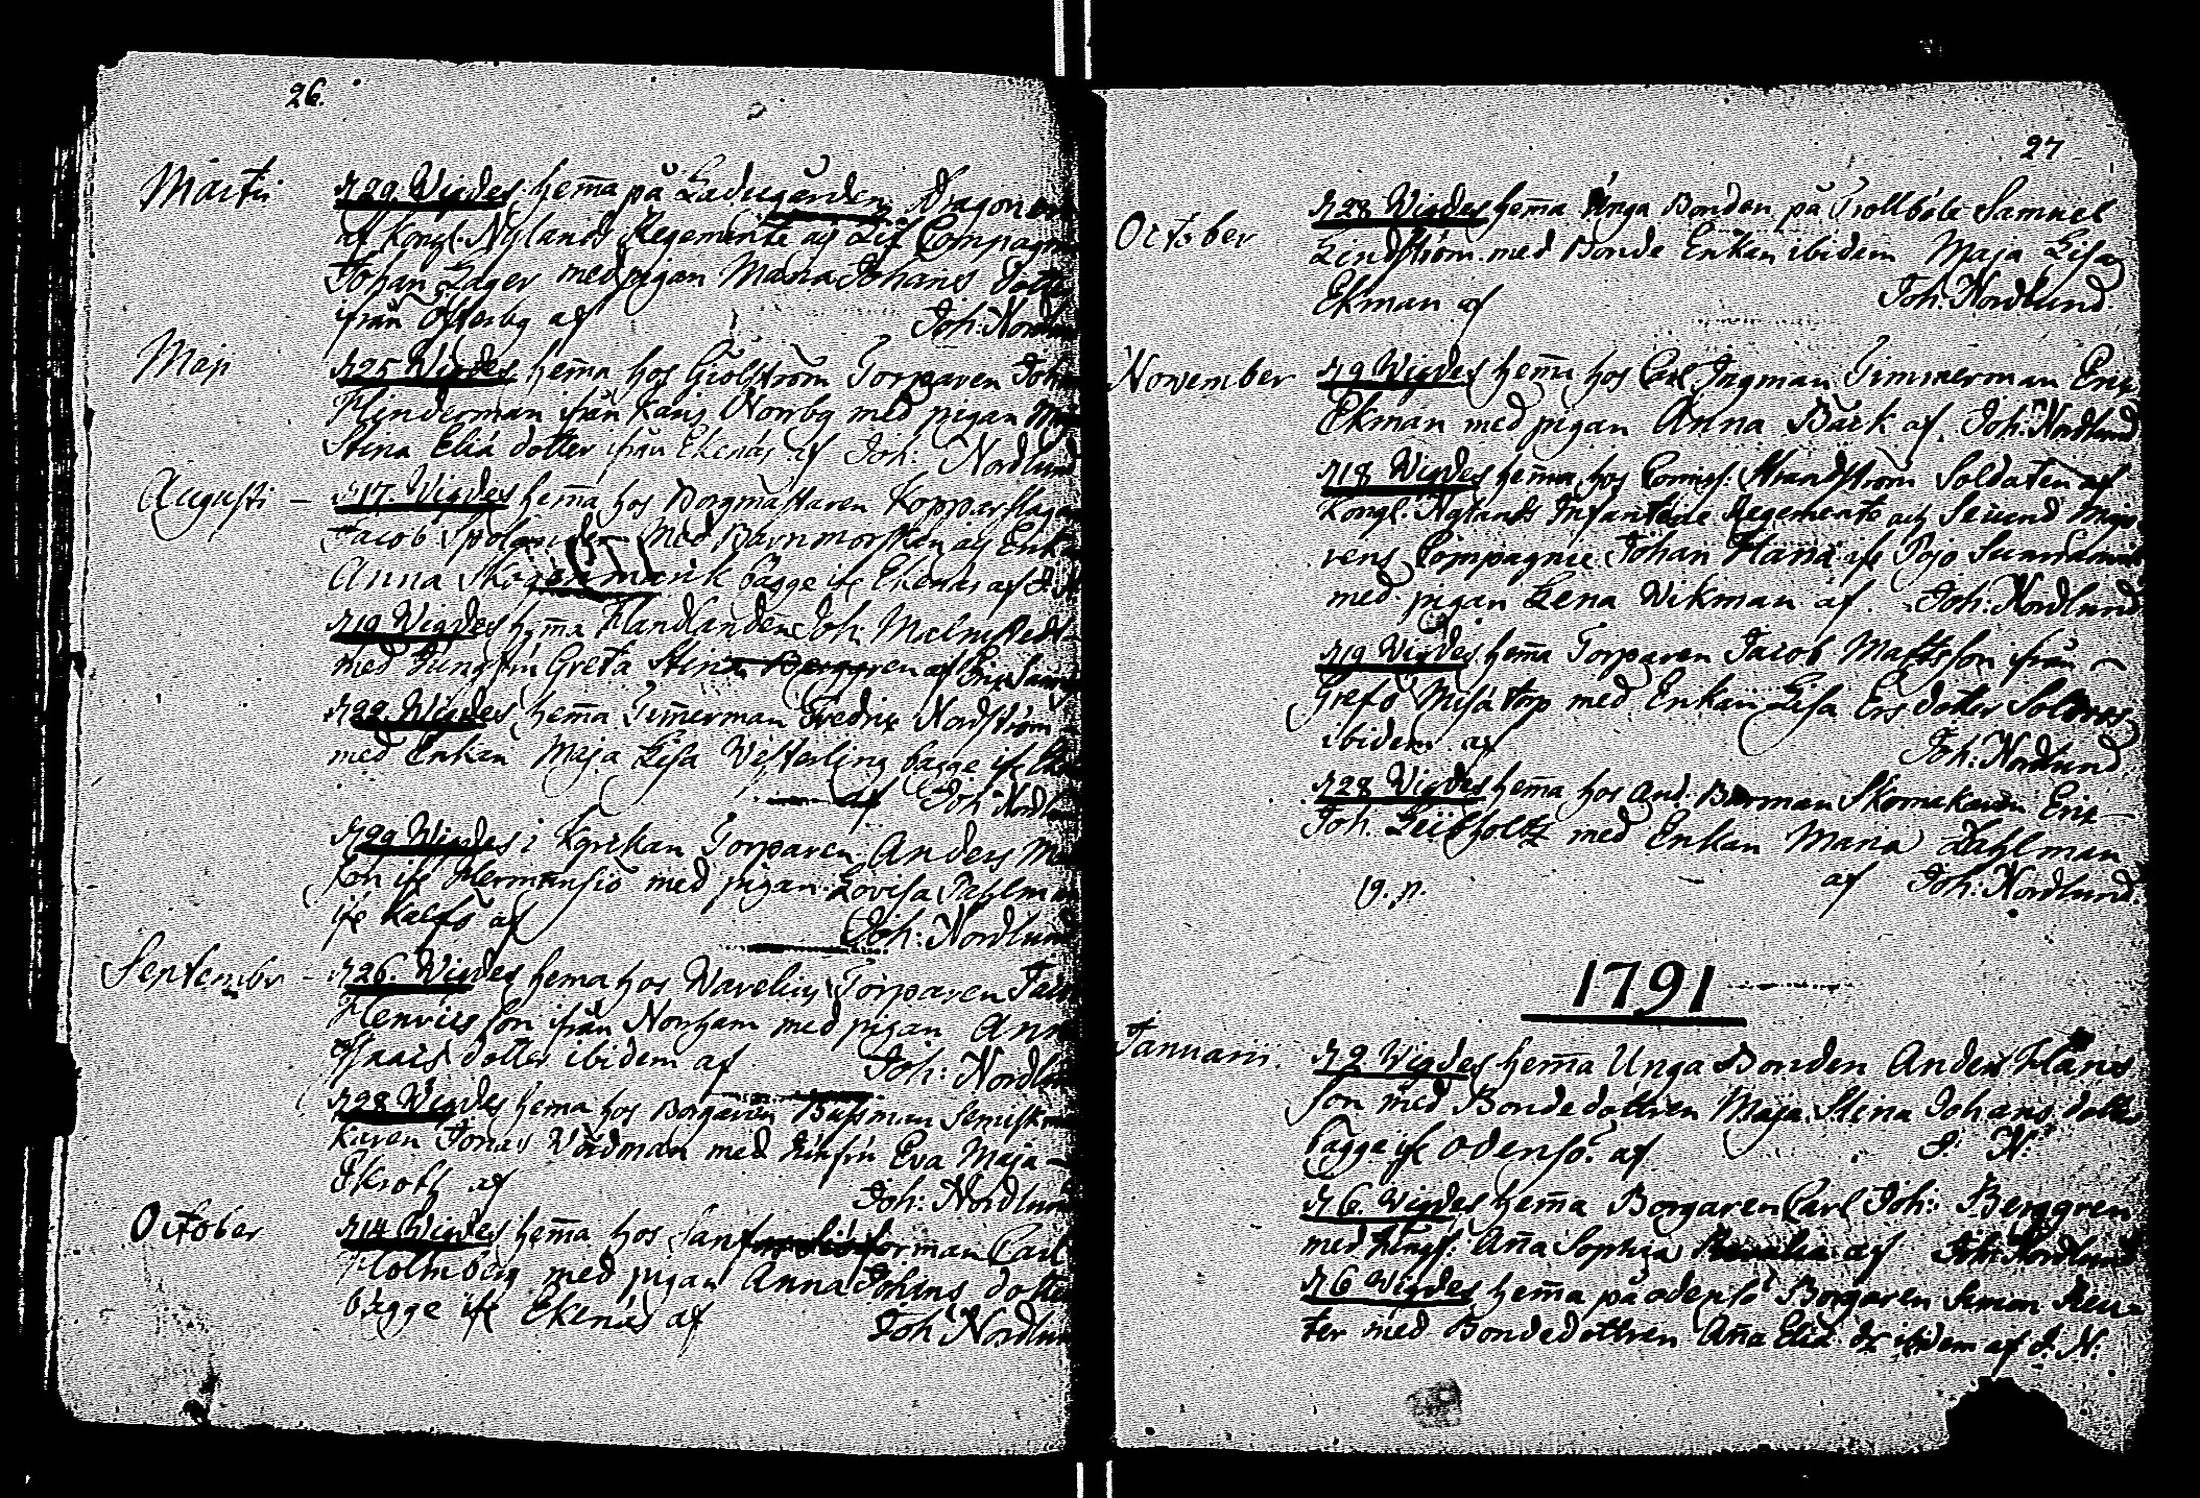 26.
Martii
d 29. Wigdes hem̄a på Ladugården Dragonen
af Kongl. Nylands Regemente och Lif Compagn
Johan Lager med pigan Maria Johans dotte
ifrån Österby af Joh: Nordlu
Maji
d 25 Wigdes hem̄a hos Giölström Torparen Joh
Flinderman ifrån Norrby med pigan
Stina Eliæ dotter ifrån Ekenäs af Joh: Nordlund
Augusti
d 17. Wigdes hem̄a hos Borgmästaren Kopparslaga
Jacob med Barnmorskan och Enk
Anna bägge ifr Ekenäs af J. N
d 19 Wigdes hem̄a Handlanden Joh: Malmstedt
med Jungfrun Greta Stina Berggren af
d 22 Wigdes hem̄a Tim̄erman Fredric Nordström
med Enkan Maja Lisa Westerling bägge ifr
af Joh: Nordlu
d 29 Wigdes i Kyrkan Torparen Anders Ma
son ifr Hermansiö med pigan Lovisa Pahlman
ifr Kalfö af Joh: Nordlund
September
d 26. Wigdes hema hos Warelius Torparen Jac
Henrics son ifrån Norrham med pigan Ann
Isaacs dotter ibidem af Joh: Nordlu
d 28 Wigdes hema hos Borgaren Bussman Semiskma
karen Jonas Wördman med Eva Maja
Ekroth af Joh: Nordlund
October
d 14 Wigdes hem̄a hos Carl
Holmberg med pigan Anna Johans dotte
bägge ifr Ekenäs af Joh: Nordlun
27
October
d 28 Wigdes hem̄a Unga Bonden på Trollböle Samuel
Lindström med Bonde Enkan ibidem Maja Lisa
Ekman af Joh: Nordlund
November
d 9 Wigdes hem̄a hos Carl Ingman Timmerman Eric
Ekman med pigan Anna Bäck af Joh: Nordlund
d 18 Wigdes hem̄a hos Comiss: Strandström Soldaten af
Kongl. Nylands Infanterie Regemente och Second Majo
rens Compagnie Johan ifr Pojo
med pigan Lena Wikman af Joh: Nordlund
d 19 Wigdes hem̄a Torparen Jacob Mattsson ifrån
Grefö torp med Enkan Lisa Ersdotter
ibidem af Joh: Nordlund
d 28 Wigdes hem̄a hos And: Borman Skomakaren Eric
Joh. med Enkan Maria Dahlman
19. p. af Joh: Nordlund.
1791
Januarii
d 2 Wigdes hem̄a Unga Bonden Anders Hans
son med Bondedottren Maja Stina Johans dotte
bägge ifr Odensö af J: N:
d 6. Wigdes hem̄a Borgaren Carl Joh: Berggren
med Jungf: An̄a Sophia af Joh: Nordlund
d 6 Wigdes hem̄a på odensö Borgaren Simon Reu=
ter med Bondedottren An̄a Elia dr ibidem af J. N: